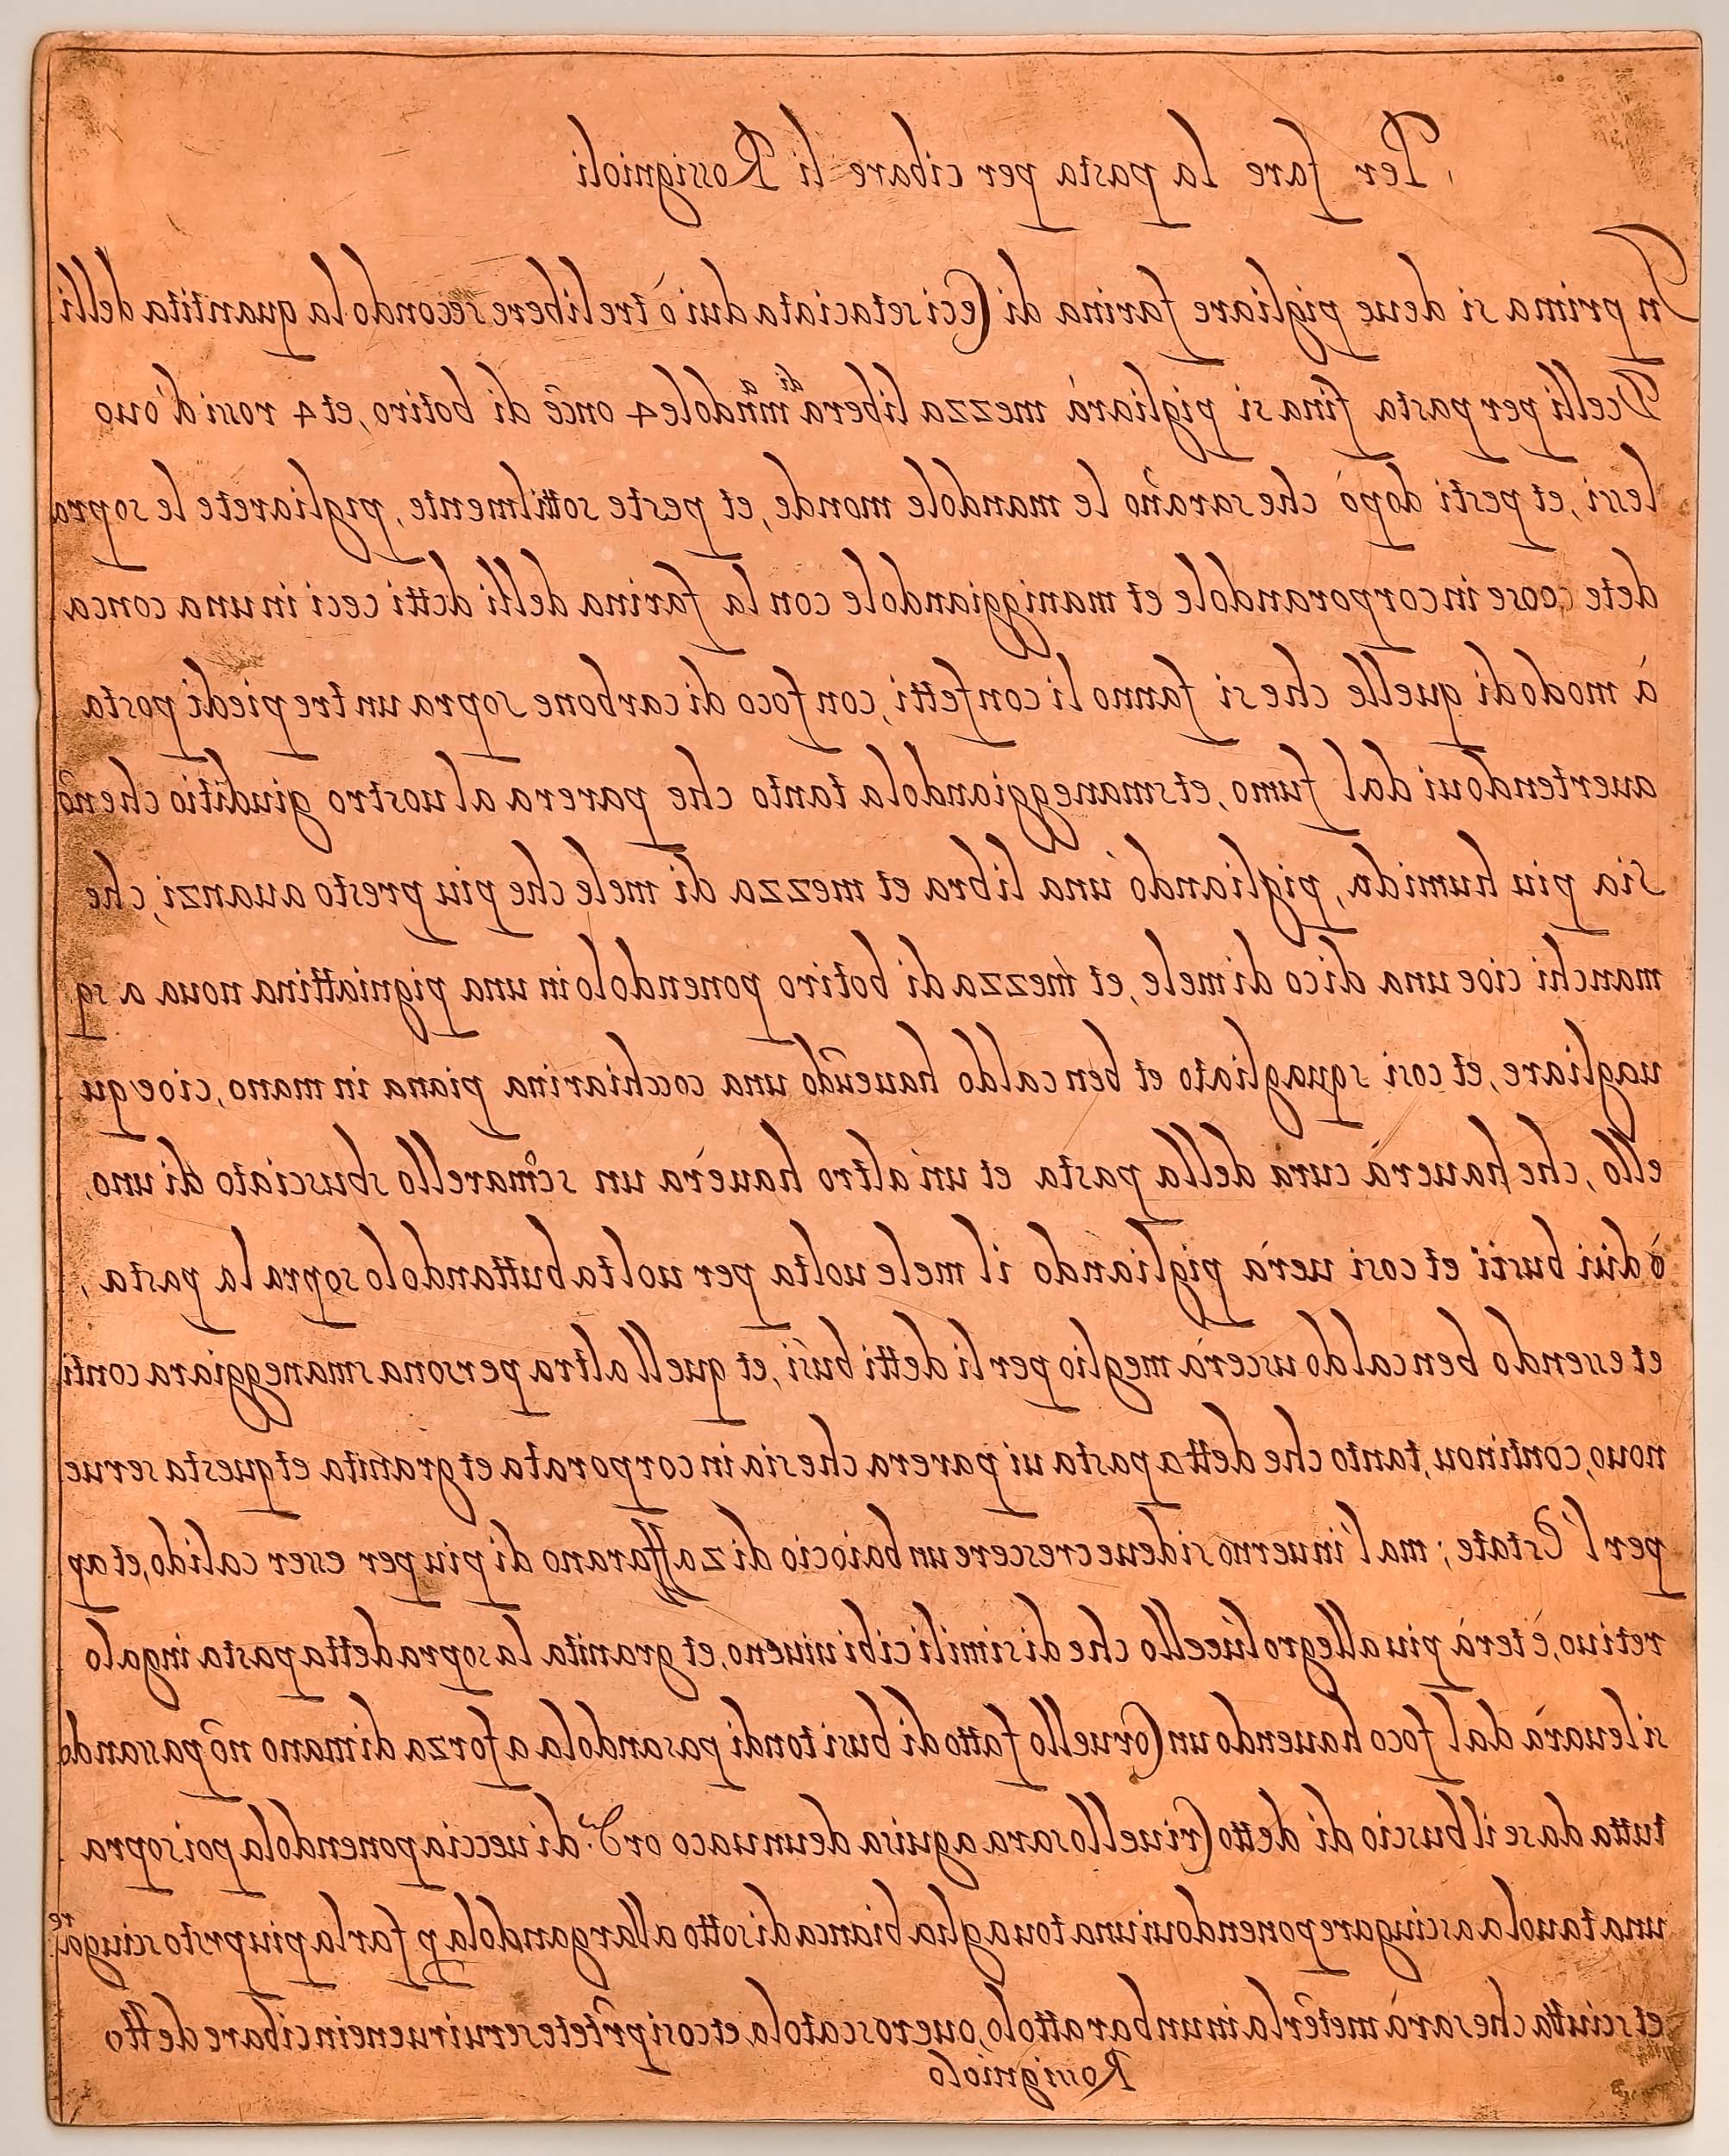 Per fare la pasta per cibare li Rossignioli
In prima si deue pigliare farina di Ceci setaciata dui ò tre libere secondo la quantita delli
Vcelli per pasta fina si pigliarà mezza libera di mandole 4 once di botiro, et 4 rossi d'ouo
lessi, et pesti dopò che sarano le mandole monde, et peste sottilmente, pigliarete le sopra
dete cose incorporandole et maniggiandole con la farina delli detti ceci in una conca
à modo di quelle che si fanno li confetti, con foco di carbone sopra un trepiedi posta
auertendoui dal fumo, et smaneggiandola tanto che parera al uostro giuditio che nō
sia piu humida, pigliando una libra et mezza di mele che piu presto auanzi, che
manchi cioe una dico di mele, et mezza di botiro ponendolo in una pigniattina noua a sq
uagliare, et cosi squagliato et ben caldo hauēdo una cocchiarina piana in mano, cioe qu
ello, che hauerà cura della pasta et un'altro hauerà un scumarello sbusciato di uno,
ò dui busi et cosi uerà pigliando il mele uolta per uolta buttandolo sopra la pasta,
et essendo ben caldo uscerà meglio per li detti busi, et quell altra persona smaneggiara conti
nouo, continou, tanto che detta pasta ui parera che sia incorporata et granita et questa serue
per l'Estate; ma l'inuerno si deue crescere un baiocio di zaffarano di piu per esser calido, et ap
retiuo, è terà piu allegro lucello che di simili cibi uiueno, et granita la sopradetta pasta ingalo
si leuarà dal foco hauendo un Coruello fatto di busi tondi pasandola a forza di mano nō passando
tutta da se il buscio di detto Criuello sara a guisa de un uaco or di ueccia ponendola poi sopra
una tauola a sciugare ponendoui una touaglia bianca di sotto allargandola p farla piu prsto sciugare
et sciutta che sarà meterla in un barattolo, ouero scatola, et cosi prēte seruiruene in cibare detto
Rossigniolo